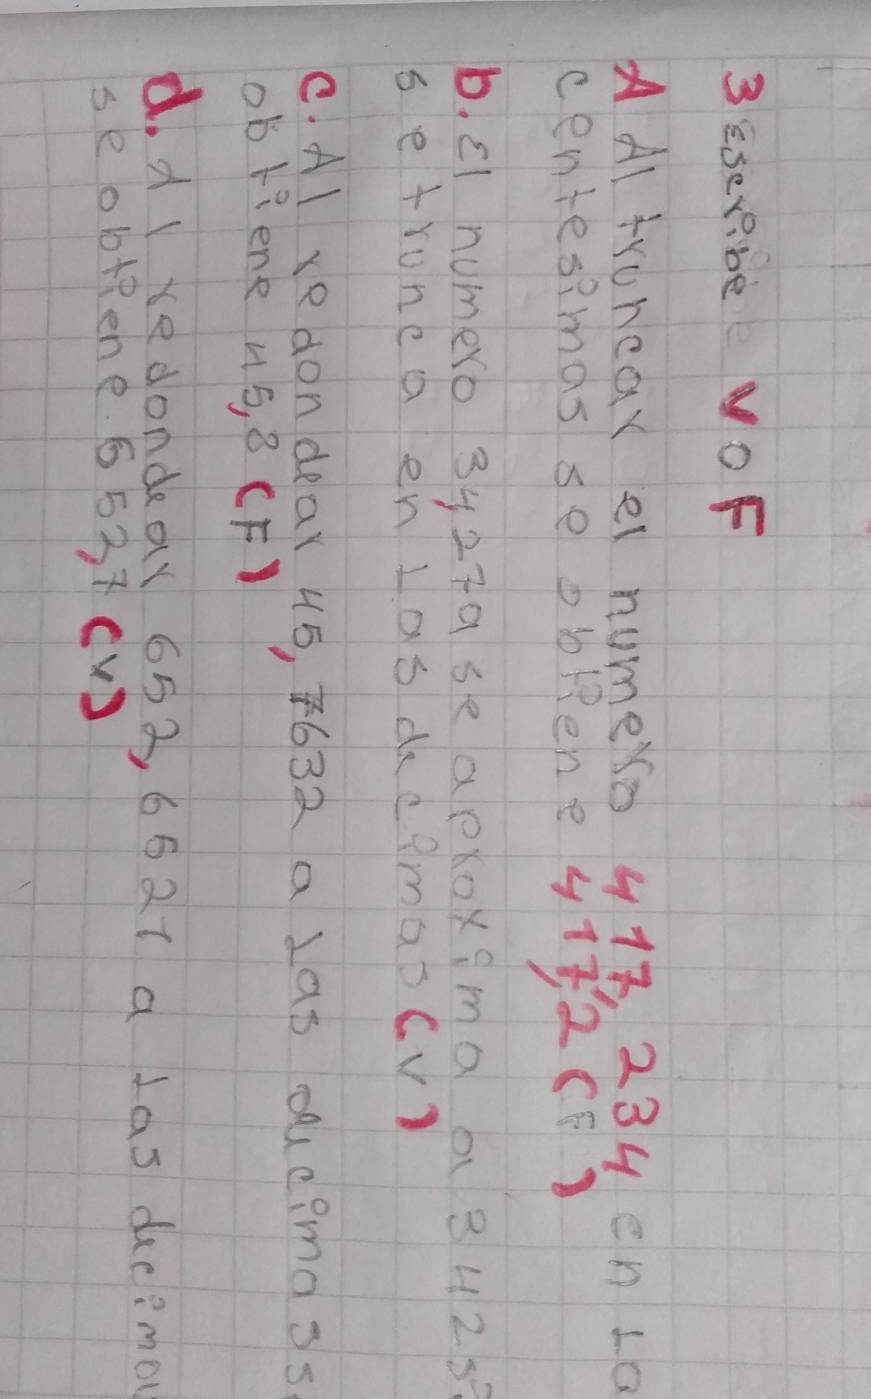 3 Escribe V O F
A Al truncar el numero 417,234 en La
centesimas se obtiene 417,2 (F)
b. El numero 34,279 se aproxima a 342 si
se trunca en Las decimas (V)
c. Al redondear 45,7632 a Las decimas s
obtiene 45,8 (F)
d. Al redondear 652,6621 a Las decima
se obtiene 652,7 (V)